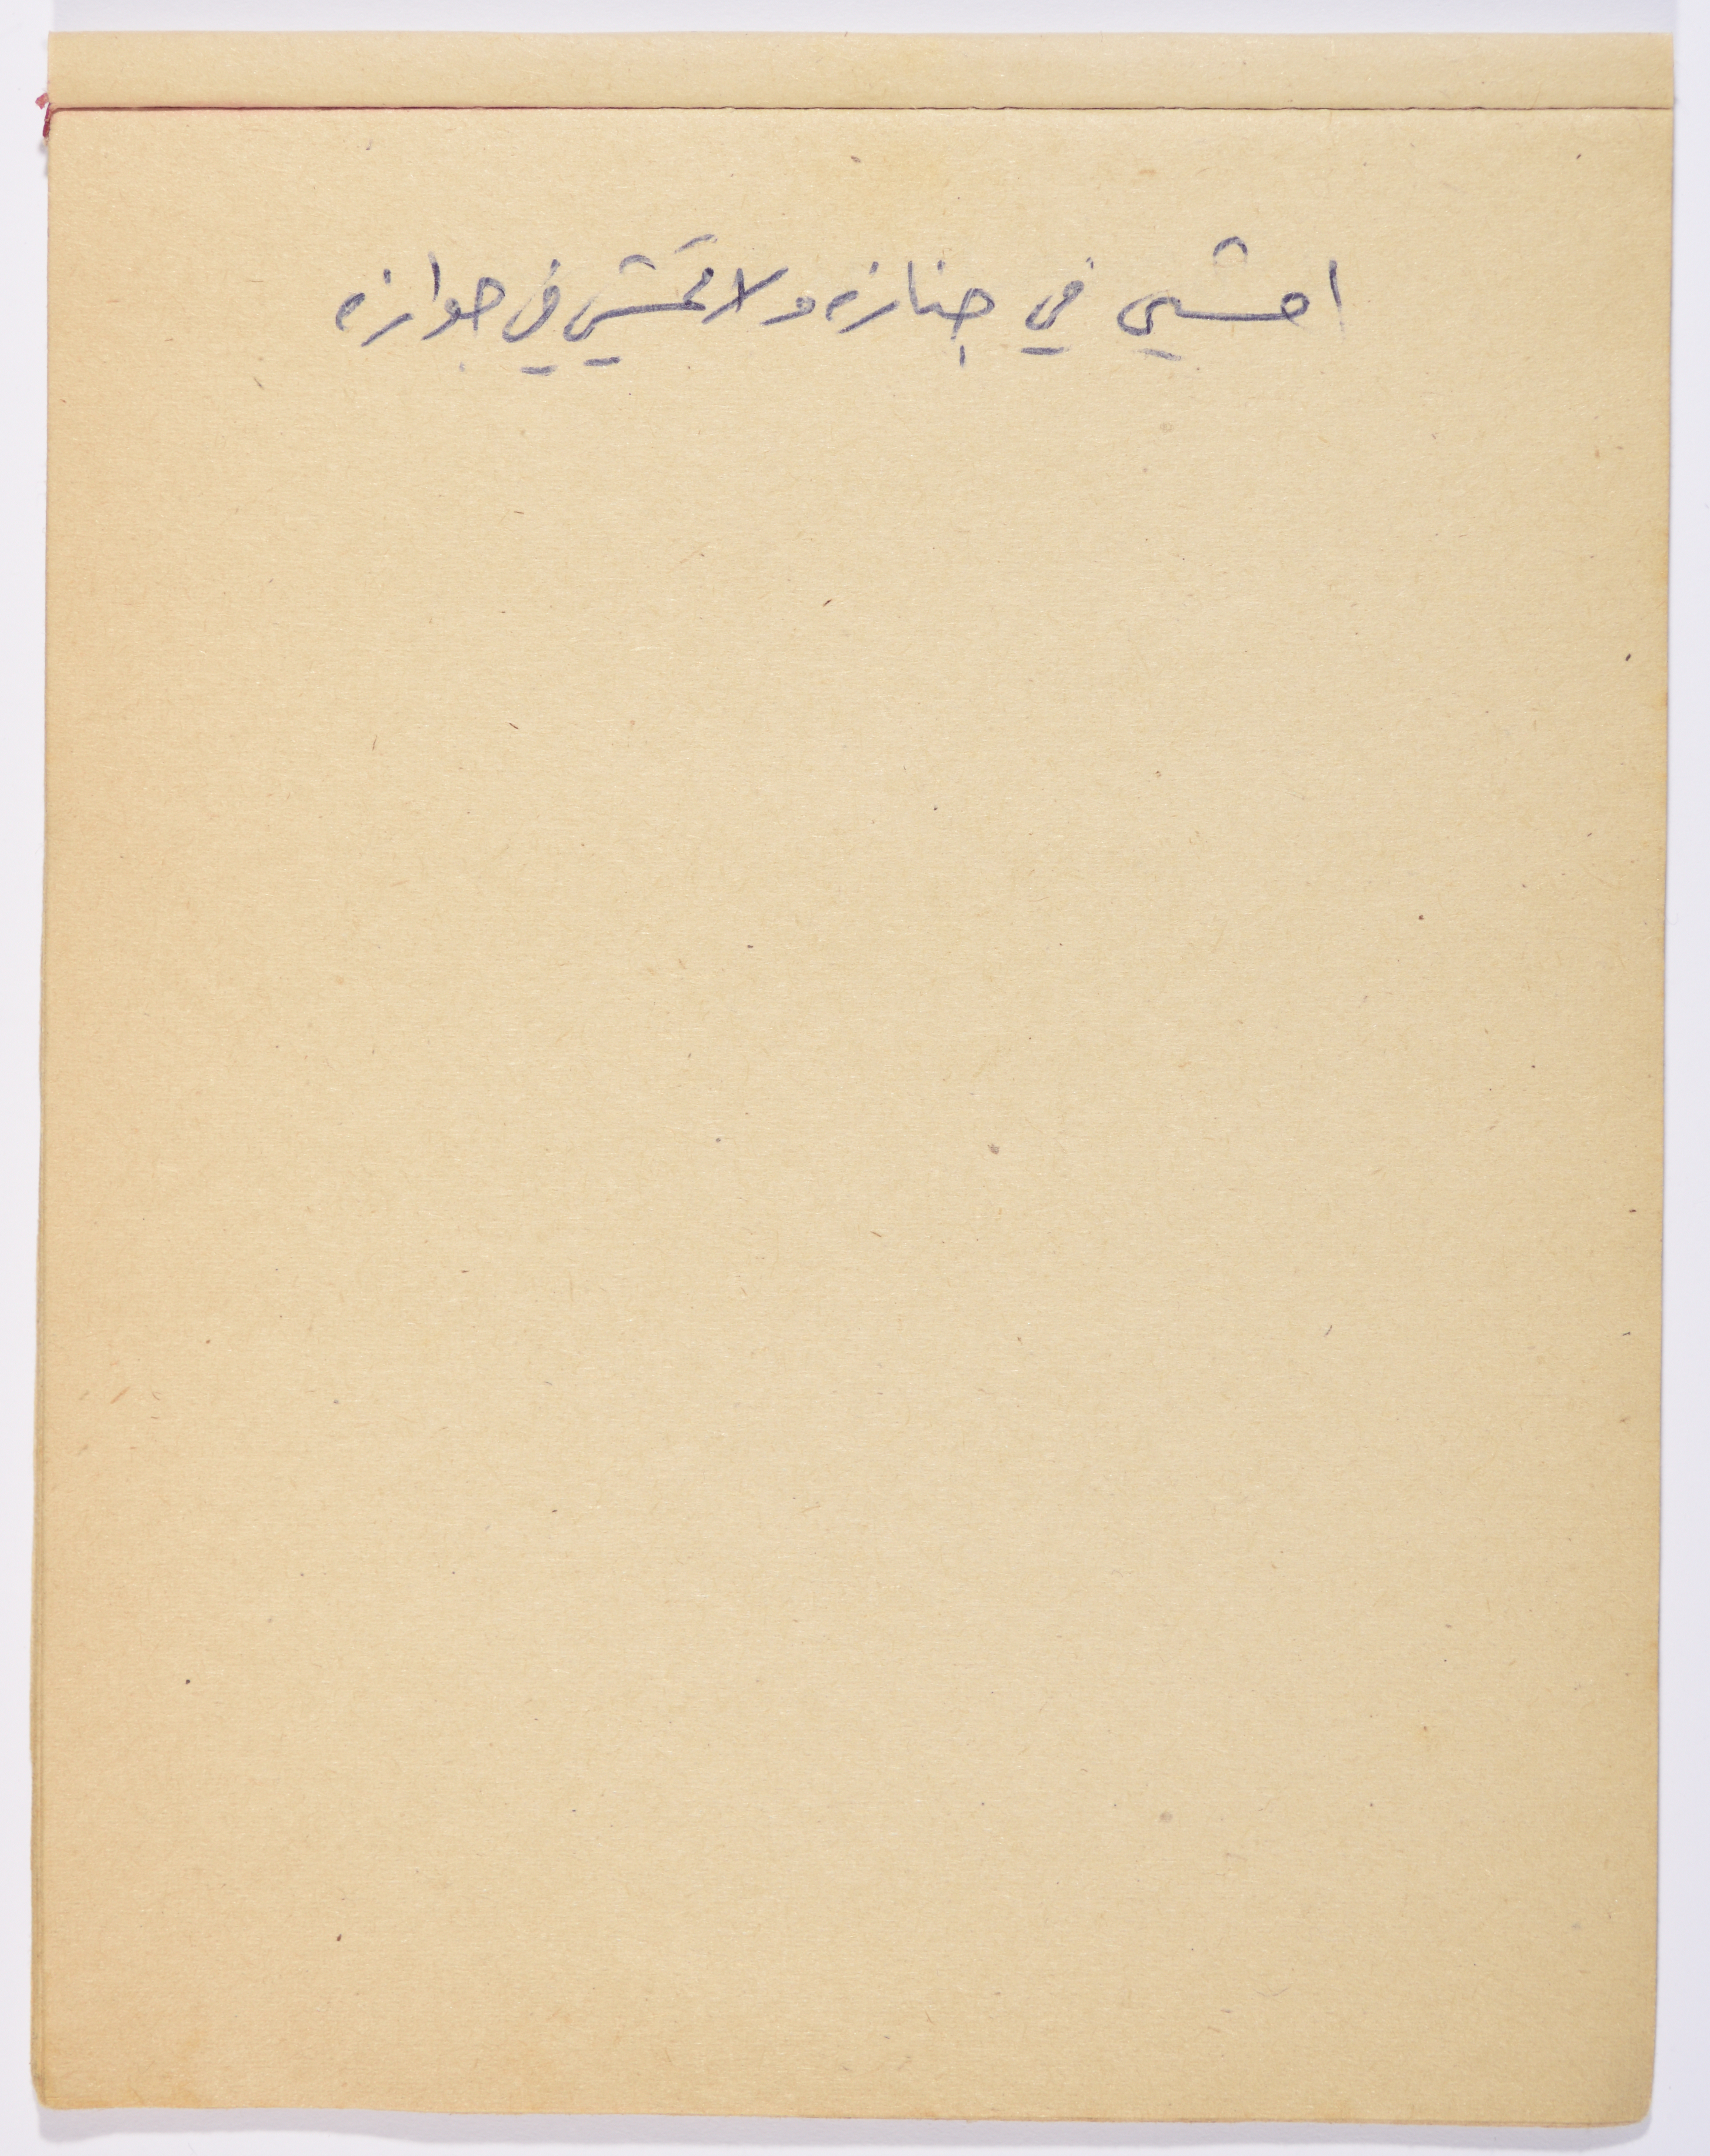 امشي في جنازه ولا تمشي في جوازه